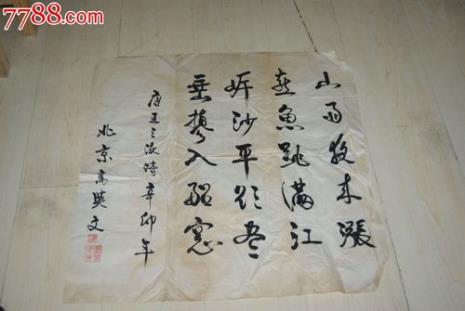 7788.com
山雨夜来涨
喜鱼跳满江
岸沙平欲尽
垂蓼入船窗
唐王之涣诗 辛卯年
北京高英文